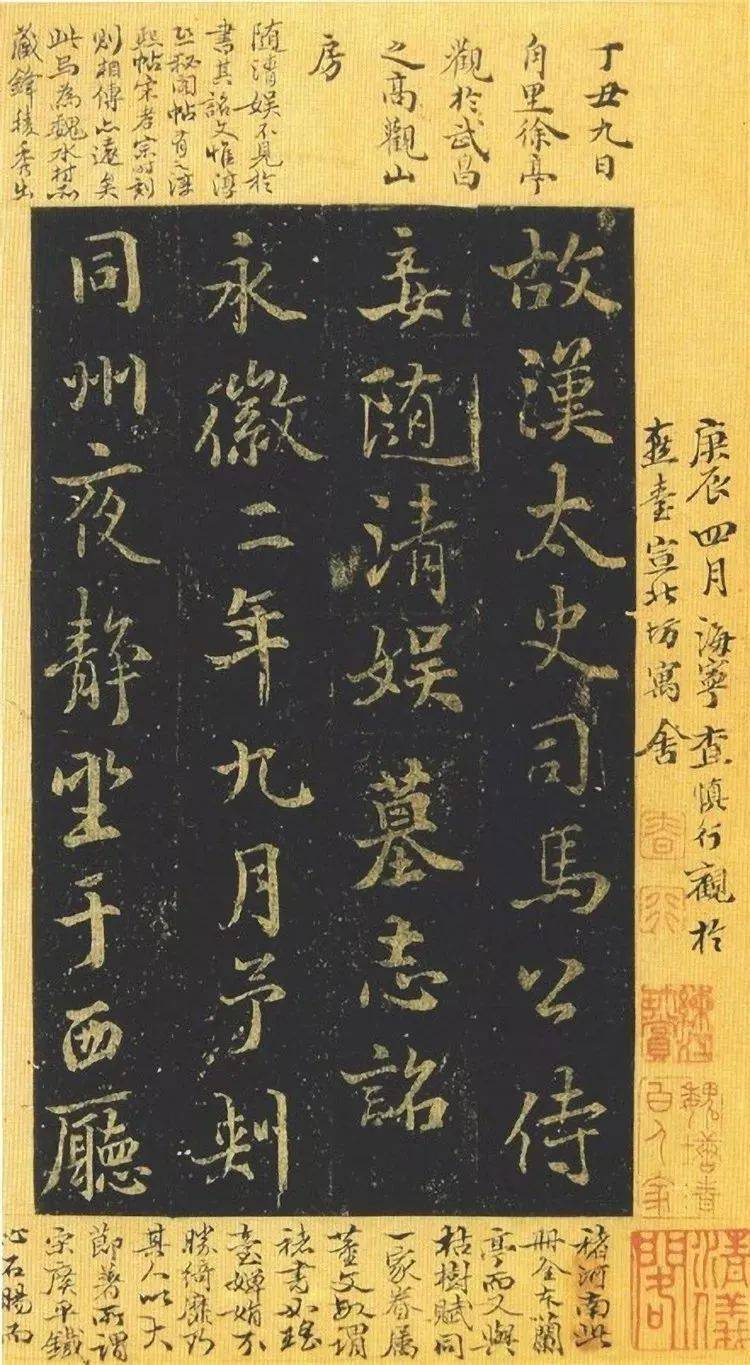 故漢太史司馬公侍
妾隨清娱墓志銘
永徽二年九月予刺
同州夜静坐于西廳
丁丑九日
甪里徐亭
觀於武昌
之高觀山
房
随清娱不見於
書其銘文惟淳
熙秘閣帖有之淳
熙帖宋孝宗时刻
則相傳亦遠矣
此与為魏水村
藏鋒稜秀出
庚辰四月海寧查慎行觀於
燕臺宣北坊寓舍
褚河南此
冊全本蘭
亭而又與
枯樹賦同
一家眷属
董文敏謂
褚書如瑶
臺嬋娟不
勝綺靡乃
其人以大
節著所謂
宋廣平鐵
心石腸而